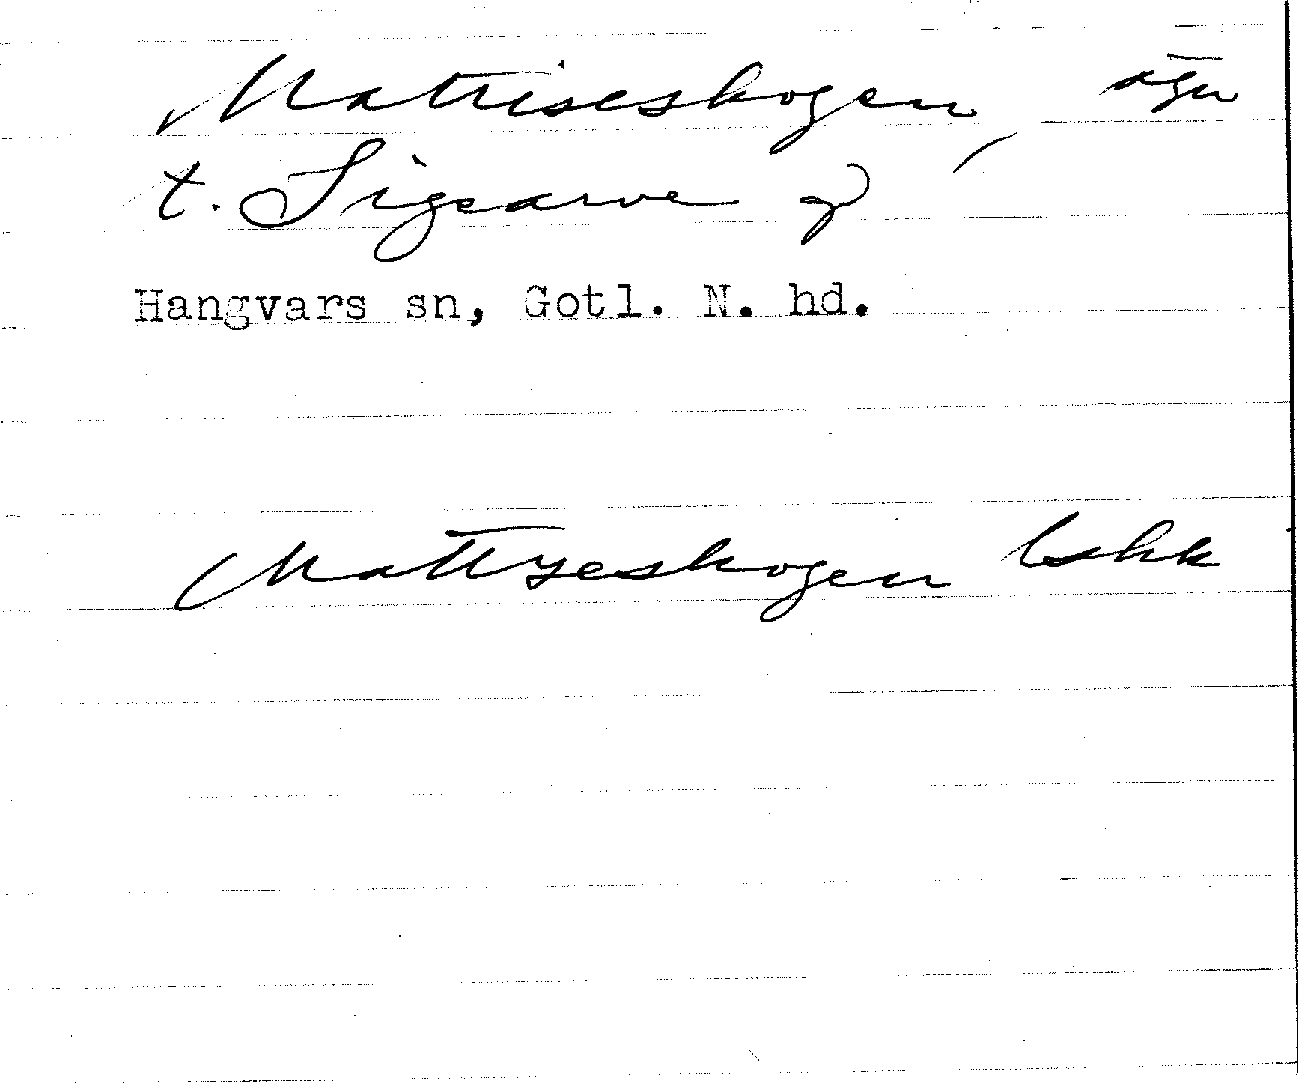 Matriseskogen, ägn
t. Sigsarve
Hangvars sn, Gotl. N. hd.
Mattyeskogen lshk